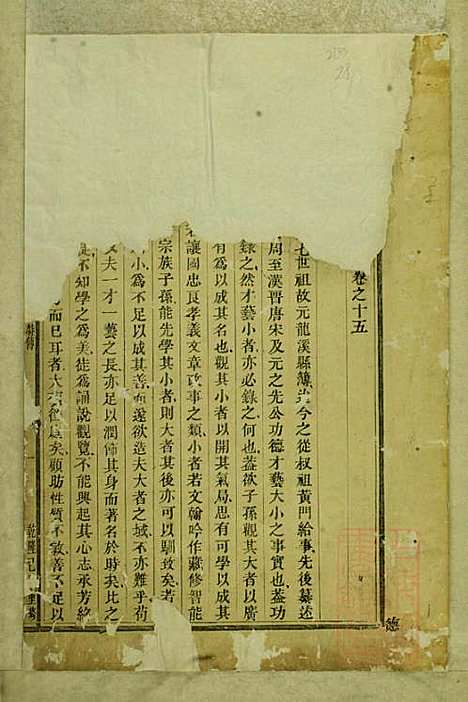 卷之十五
七世祖故元龍溪縣簿
今之從叔祖黃門給事先後纂述
周至漢晉唐宋及元之先公功德才藝大小之事實也蓋功
錄之然才藝小者亦必錄之何也蓋欲子孫觀其大者以廣
有爲以成其名也觀其小者以開其氣局思有可學以成其
讓國忠良孝義文章政事之類小者若文翰吟作藏修智能
宗族子孫能先學其小者則大者其後亦可以馴致矣若
小爲不足以成其善而遂欲造夫大者之域不亦難乎苟
夫一才一藝之長亦足以潤飾其身而著名於時矣比之
不知學之爲美徒爲誦說觀覽不能興起其心志承芳
而已耳者大矣顧助性質不敏善不足以
乾隆己
德